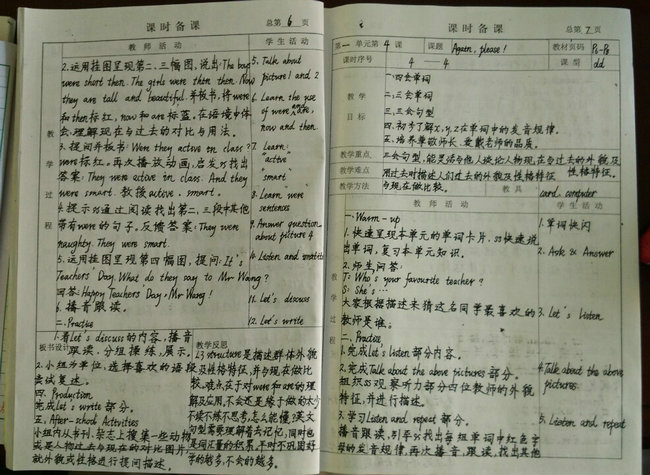 课时备课 总第 6 页
教师活动 学生活动
2.运用挂图呈现第二、三幅图,说出:The boys
were short then. The girls were thin then. Now
they are tall and beautiful.并板书,将were
和then标红,now和are标蓝,在语境中体
会、理解现在与过去的对比与用法。
3.提问并板书:Were they active in class?
were标红。再次播放动画,启发ss找出
答案:They were active in class. And they
were smart.教授active、smart。
4.提示ss通过阅读找出第二、三段中其他
带有were的句子,反馈答案:They were
naughty. They were smart.
5.运用挂图呈现第四幅图,提问:It's
Teachers' Day. What do they say to Mr Wang?
回答:Happy Teachers' Day, Mr Wang!
6.播音跟读。
二、Practise
1.看Let's discuss的内容,播音
跟读,分组操练,展示。
2.小组为单位,选择喜欢的语段
尝试复述。
四、Production
完成Let's write部分。
五、After-school Activities
小组内从书刊、杂志上搜集一些动物
或是人物过去与现在的对比图片,
就外貌或性格进行提问描述。
教学过程
5. Talk about
picture 1 and 2
6. Learn the use
of were and are,
now and then.
7. Learn:
"active"
"smart"
8. Learn "were"
sentences
9. Answer question
about picture 4
10. Listen and imitate
11. Let's discuss
12. Let's write
板书设计
教学反思
L3 structure是描述群体外貌
及性格特征,并与现在做比
较。难点在于对were和are的理
解及应用,不会还是缘于做的太少
不读不练不思考,怎么能懂?英文
句型需要理解着去记忆,同时也
是词汇量的积累。平时不巩固好,
学的越多,不会的越多。
课时备课 总第 7 页
第一单元第 4 课 课题 Again, please! 教材页码 P8-P9
课时序号 4—4 课型 dd
教学目标
一、四会单词
二、三会单词
三、三会句型
四、初步了解x,y,z在单词中的发音规律。
五、培养尊敬师长、爱戴老师的品质。
教学重点 三会句型,能灵活与他人谈论人物现在与过去的外貌及性格特征。
教学难点 用过去时描述人们过去的外貌及性格特征
教学方法 与现在做比较。 教具 card, computer
教师活动 学生活动
一、Warm-up
1.快速呈现本单元的单词卡片,ss快速说
出单词,复习本单元知识。
2.师生问答:
T: Who's your favourite teacher?
S: She's…
大家根据描述来猜这名同学最喜欢的
教师是谁。
二、Practise
1.完成Let's listen部分内容。
2.完成Talk about the above pictures部分。
组织ss观察听力部分四位教师的外貌
特征,并进行描述。
3.学习Listen and repeat部分。
播音跟读,引导ss找出每组单词中红色字
母的发音规律,再次播音,跟读,找出其他
教学过程
1. 单词快闪
2. Ask & Answer
3. Let's listen
4. Talk about the above
pictures.
5. Listen and repeat